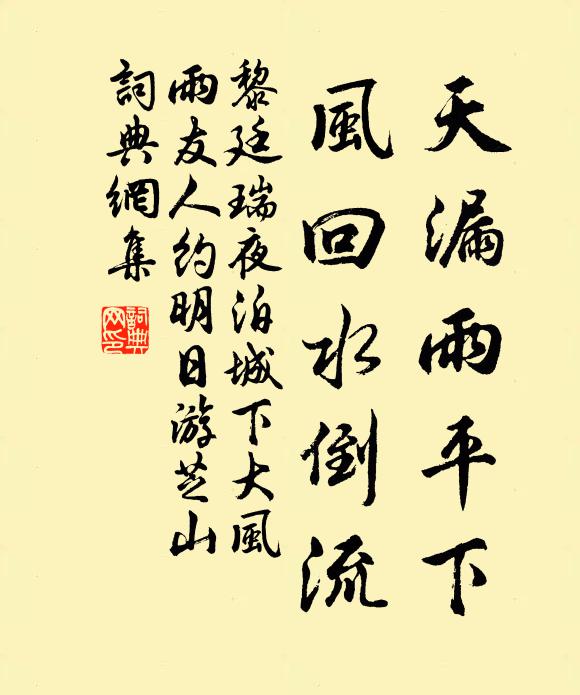 天漏雨平下
風回水倒流
黎廷瑞夜泊城下大風
雨友人約明日游芝山
詞典網集
詞典
网印